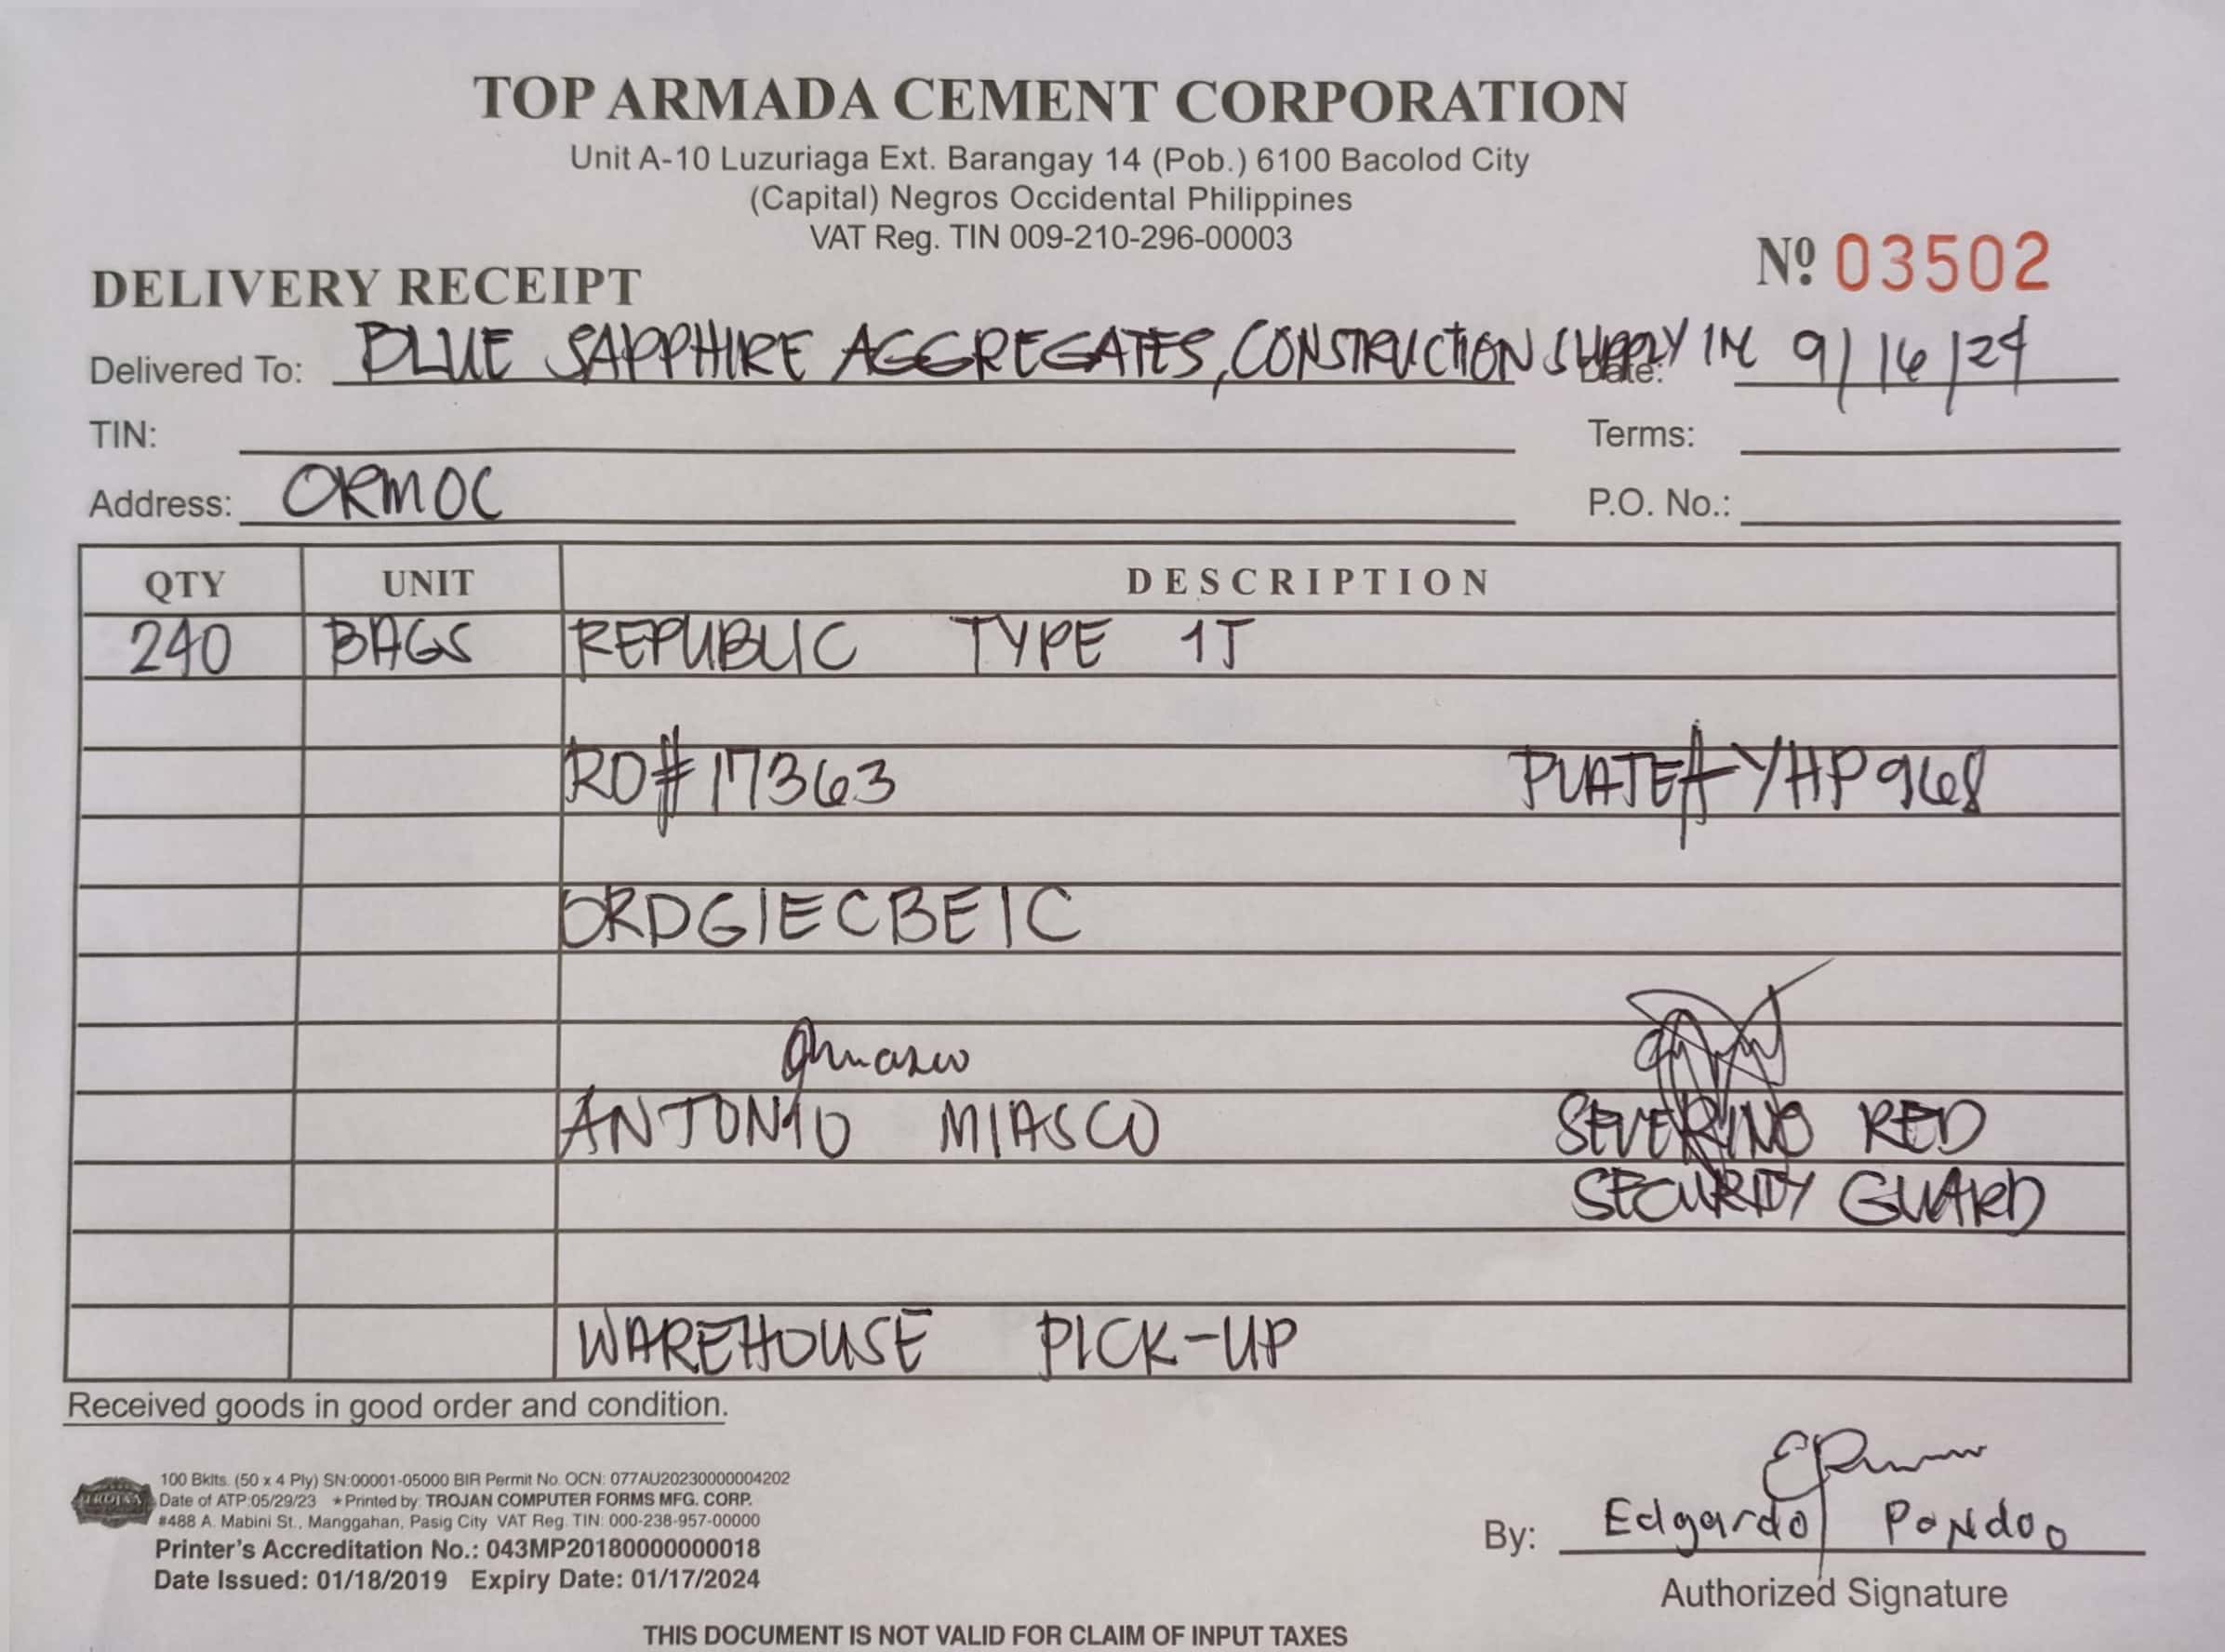 TOP ARMADA CEMENT CORPORATION
Unit A-10 Luzuriaga Ext. Barangay 14 (Pob.) 6100 Bacolod City
(Capital) Negros Occidental Philippines
VAT Reg. TIN 009-210-296-00003
DELIVERY RECEIPT Nº 03502
Delivered To: BLUE SAPPHIRE AGGREGATES, CONSTRUCTION SUPPLY Date: 9/16/24
TIN: Terms:
Address: ORMOC P.O. No.:
QTY UNIT DESCRIPTION
240 BAGS REPUBLIC TYPE 1T
RO# 17363 PLATE# YHP 968
ORDGIECBEIC
ANTONIO MIASCO SEVERINO RED
SECURITY GUARD
WAREHOUSE PICK-UP
Received goods in good order and condition.
100 Bklts. (50 x 4 Ply) SN:00001-05000 BIR Permit No. OCN: 077AU20230000004202
TROJAN Date of ATP:05/29/23 * Printed by: TROJAN COMPUTER FORMS MFG. CORP.
#488 A. Mabini St., Manggahan, Pasig City VAT Reg. TIN: 000-238-957-00000
Printer's Accreditation No.: 043MP20180000000018
Date Issued: 01/18/2019 Expiry Date: 01/17/2024
By: Edgardo Pondoo
Authorized Signature
THIS DOCUMENT IS NOT VALID FOR CLAIM OF INPUT TAXES